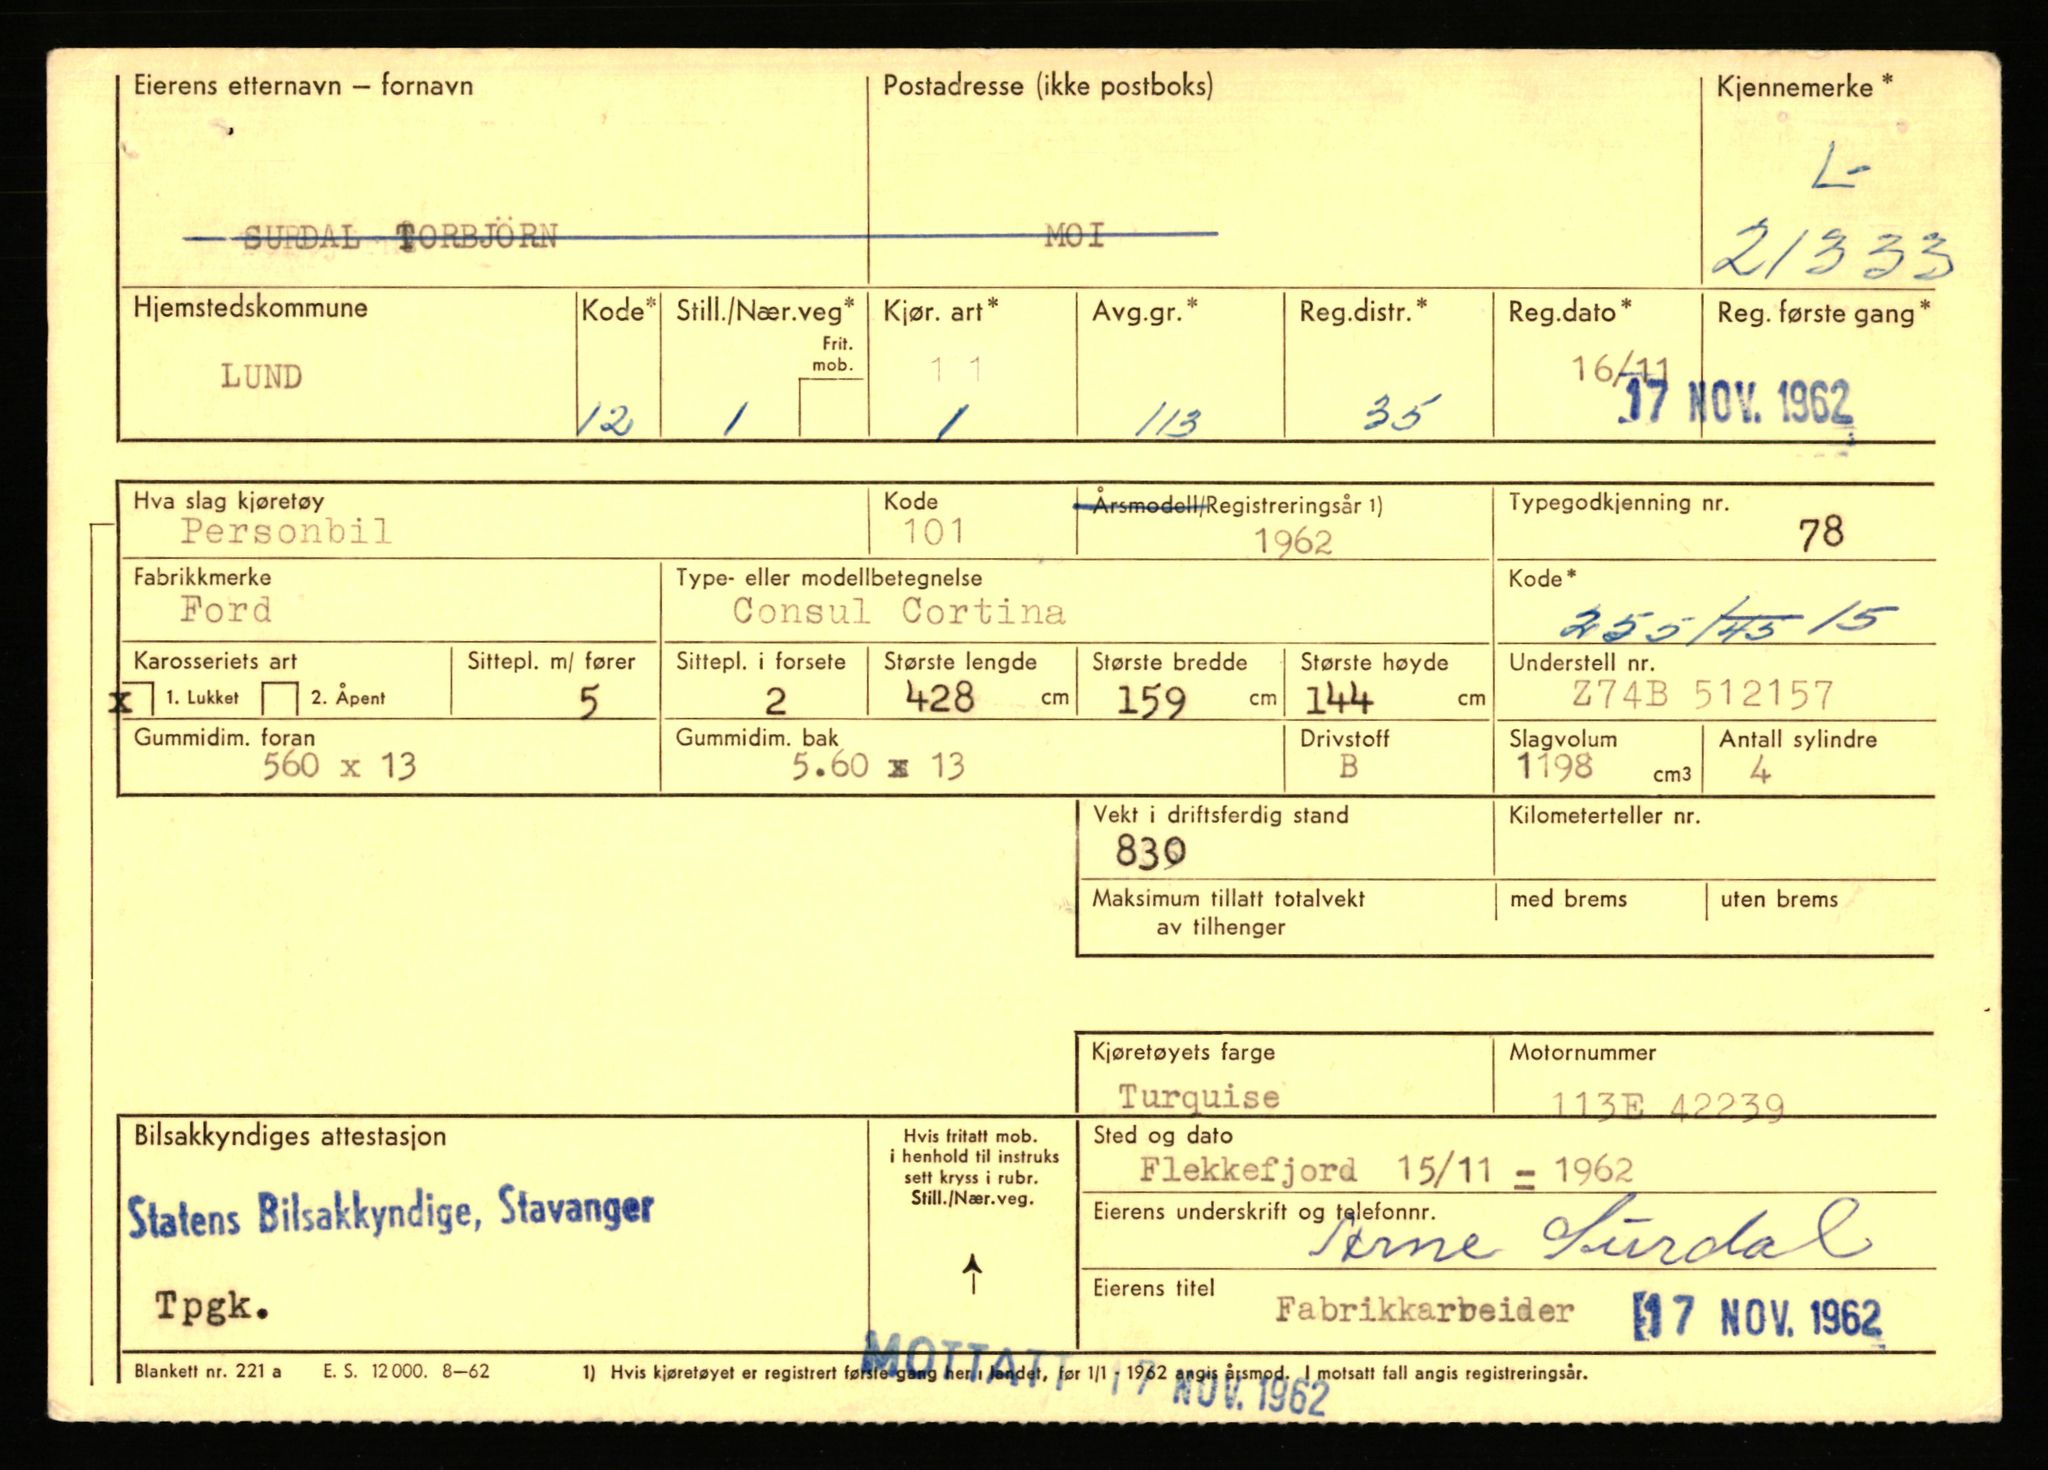 Eierens etternavn – fornavn Postadresse (ikke postboks) Kjennemerke *
L-
SURDAL TORBJÖRN MOI 21333
Hjemstedskommune Kode* Still./Nær.veg* Kjør. art* Avg.gr.* Reg.distr.* Reg.dato* Reg. første gang*
Frit.
mob.
LUND 11 16/11
12 1 1 113 35 17 NOV. 1962
Hva slag kjøretøy Kode Årsmodell/Registreringsår 1) Typegodkjenning nr.
Personbil 101 1962 78
Fabrikkmerke Type- eller modellbetegnelse Kode*
Ford Consul Cortina 255/45 15
Karosseriets art Sittepl. m/ fører Sittepl. i forsete Største lengde Største bredde Største høyde Understell nr.
x 1. Lukket 2. Åpent 5 2 428 cm 159 cm 144 cm Z74B 512157
Gummidim. foran Gummidim. bak Drivstoff Slagvolum Antall sylindre
560 x 13 5.60 x 13 B 1198 cm3 4
Vekt i driftsferdig stand Kilometerteller nr.
830
Maksimum tillatt totalvekt med brems uten brems
av tilhenger
Kjøretøyets farge Motornummer
Turquise 113E 42239
Bilsakkyndiges attestasjon Hvis fritatt mob. Sted og dato
i henhold til instruks
sett kryss i rubr.
Still./Nær.veg.
Flekkefjord 15/11 = 1962
Statens Bilsakkyndige, Stavanger Eierens underskrift og telefonnr.
Arne Surdal
Eierens titel
Tpgk. Fabrikkarbeider 17 NOV. 1962
MOTTATT 17 NOV. 1962
Blankett nr. 221 a E. S. 12000. 8–62 1) Hvis kjøretøyet er registrert første gang her i landet, før 1/1 - 1962 angis årsmod. I motsatt fall angis registreringsår.